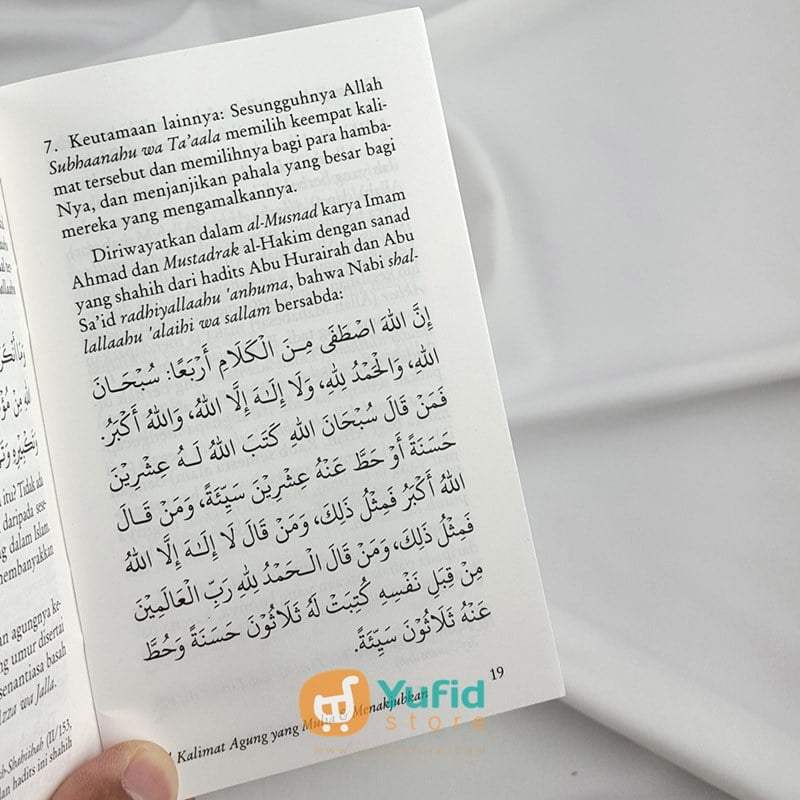 7. Keutamaan lainnya: Sesungguhnya Allah
Subhaanahu wa Ta'aala memilih keempat kali-
mat tersebut dan memilihnya bagi para hamba-
Nya, dan menjanjikan pahala yang besar bagi
mereka yang mengamalkannya.
Diriwayatkan dalam al-Musnad karya Imam
Ahmad dan Mustadrak al-Hakim dengan sanad
yang shahih dari hadits Abu Hurairah dan Abu
Sa'id radhiyallaahu 'anhuma, bahwa Nabi shal-
lallaahu 'alaihi wa sallam bersabda:
إِنَّ اللهَ اصْطَفَى مِنَ الْكَلَامِ أَرْبَعًا: سُبْحَانَ
اللهِ، وَالْحَمْدُ لِلهِ، وَلَا إِلَهَ إِلَّا اللهُ، وَاللهُ أَكْبَرُ.
فَمَنْ قَالَ سُبْحَانَ اللهِ كَتَبَ اللهُ لَهُ عِشْرِيْنَ
حَسَنَةً أَوْ حَطَّ عَنْهُ عِشْرِيْنَ سَيِّئَةً، وَمَنْ قَالَ
اللهُ أَكْبَرُ فَمِثْلُ ذَلِكَ، وَمَنْ قَالَ لَا إِلَهَ إِلَّا اللهُ
فَمِثْلُ ذَلِكَ، وَمَنْ قَالَ الْحَمْدُ لِلهِ رَبِّ الْعَالَمِيْنَ
مِنْ قِبَلِ نَفْسِهِ كُتِبَتْ لَهُ ثَلَاثُوْنَ حَسَنَةً وَحُطَّ
عَنْهُ ثَلَاثُوْنَ سَيِّئَةً.
19
Kalimat Agung yang Mulia & Menakjubkan
Yufid
store
itu? Tidak ada
daripada sese-
dalam Islam.
agungnya ke-
umur disertai
senantiasa basah
wa Jalla.
(II/153,
hadits ini shahih